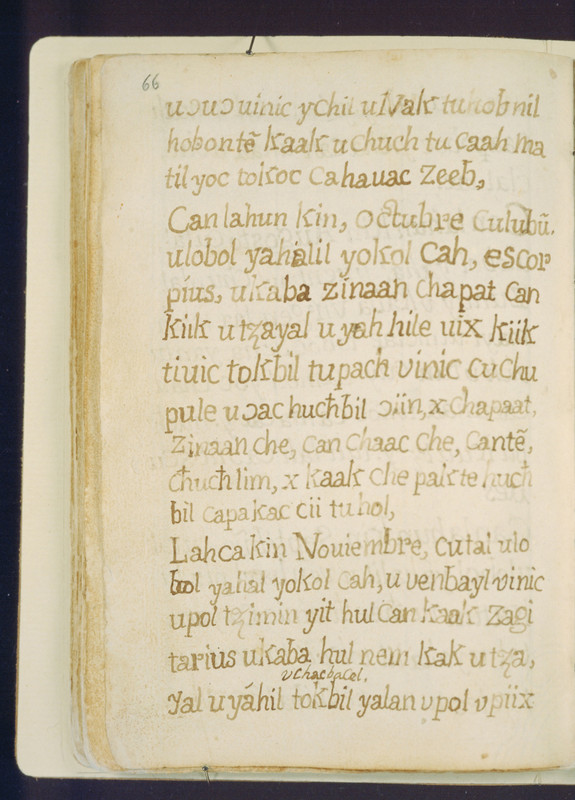 66
uɔuɔ uinic ychil u Vak tu hobnil
hobontẽ Kaak u chuch tu caah ma
til yoc tokoc Cahauac Zeeb,
Canlahun Kin, Octubre Culubũ.
ulobol yahalil yokol Cah, escor
pius, ukaba zinaan chapat Can
Kiik u tzayal u yah hile uix Kiik
tiuic tokbil tu pach vinic cuchu
pule uɔac hucħbil ɔiin, x chapaat,
Zinaan che, Can chaac che, Cantẽ,
cħucħlim, x Kaak che pakte hucħ
bil capakac cii tu hol,
Lahca kin Nouiembre, cutal ulo
bol yahal yokol cah, u uenbayl vinic
upol tzimin yit hul can kaak Zagi
tarius ukaba hul nem kak u tza,
v chacbacel.
yal u yáhil tokbil yalan v pol v piix